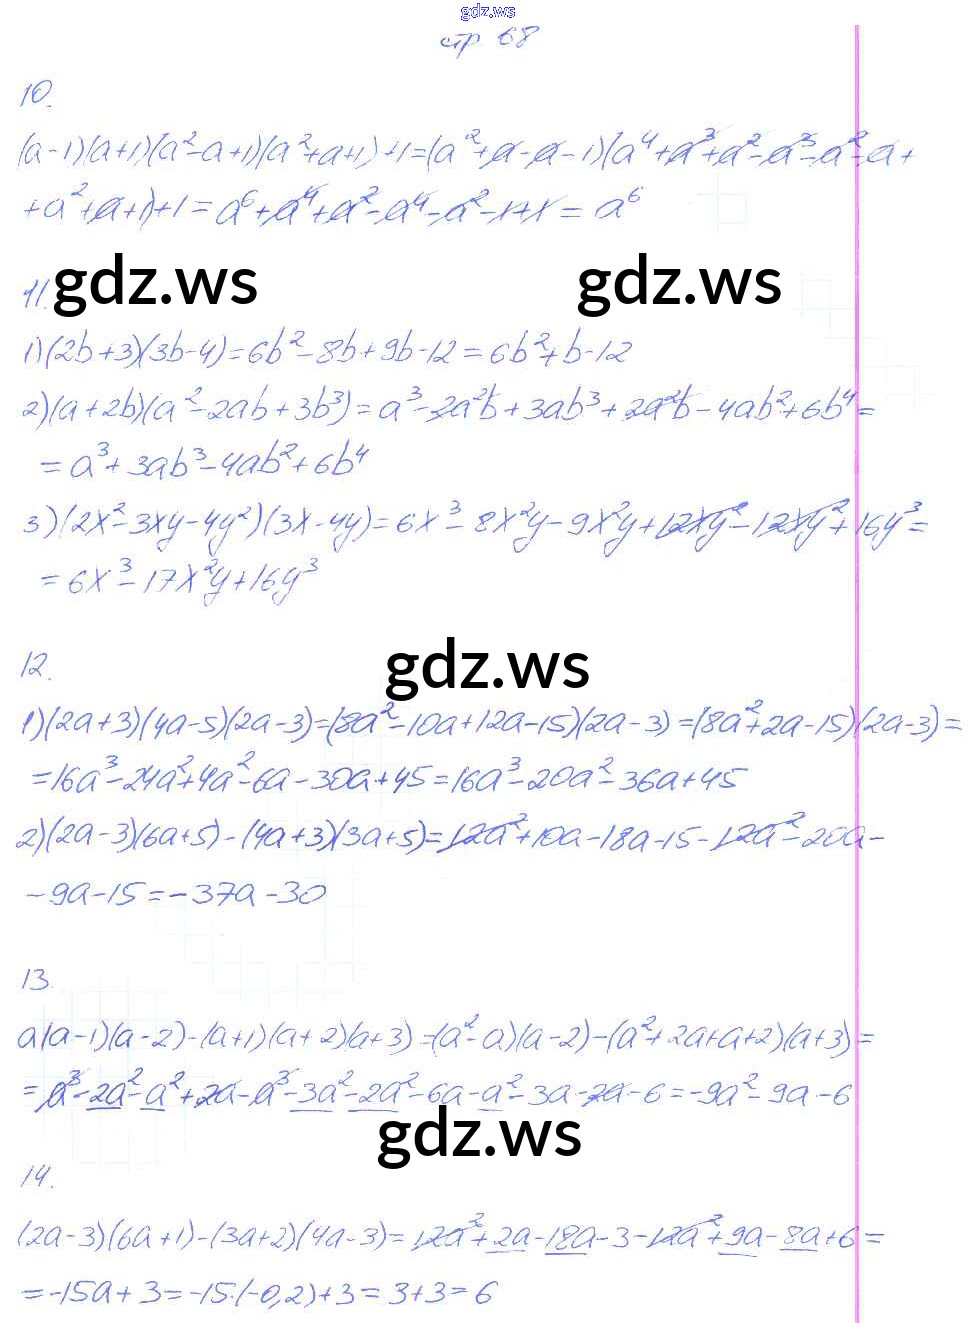 gdz.ws
стр 68
10.
(a-1)(a+1)(a²-a+1)(a²+a+1)+1=(a²+a-a-1)(a⁴+a³+a²-a³-a²-a+
+a²+a+1)+1=a⁶+a⁴+a²-a⁴-a²-1+1=a⁶
gdz.ws gdz.ws
11.
1)(2b+3)(3b-4)=6b²-8b+9b-12=6b²+b-12
2)(a+2b)(a²-2ab+3b³)=a³-2a²b+3ab³+2a²b-4ab²+6b⁴=
=a³+3ab³-4ab²+6b⁴
3)(2x²-3xy-4y²)(3x-4y)=6x³-8x²y-9x²y+12xy²-12xy²+16y³=
=6x³-17x²y+16y³
gdz.ws
12.
1)(2a+3)(4a-5)(2a-3)=(8a²-10a+12a-15)(2a-3)=(8a²+2a-15)(2a-3)=
=16a³-24a²+4a²-6a-30a+45=16a³-20a²-36a+45
2)(2a-3)(6a+5)-(4a+3)(3a+5)=12a²+10a-18a-15-12a²-20a-
-9a-15=-37a-30
13.
a(a-1)(a-2)-(a+1)(a+2)(a+3)=(a²-a)(a-2)-(a²+2a+a+2)(a+3)=
=a³-2a²-a²+2a-a³-3a²-2a²-6a-a²-3a-2a-6=-9a²-9a-6
gdz.ws
14.
(2a-3)(6a+1)-(3a+2)(4a-3)=12a²+2a-18a-3-12a²+9a-8a+6=
=-15a+3=-15·(-0,2)+3=3+3=6